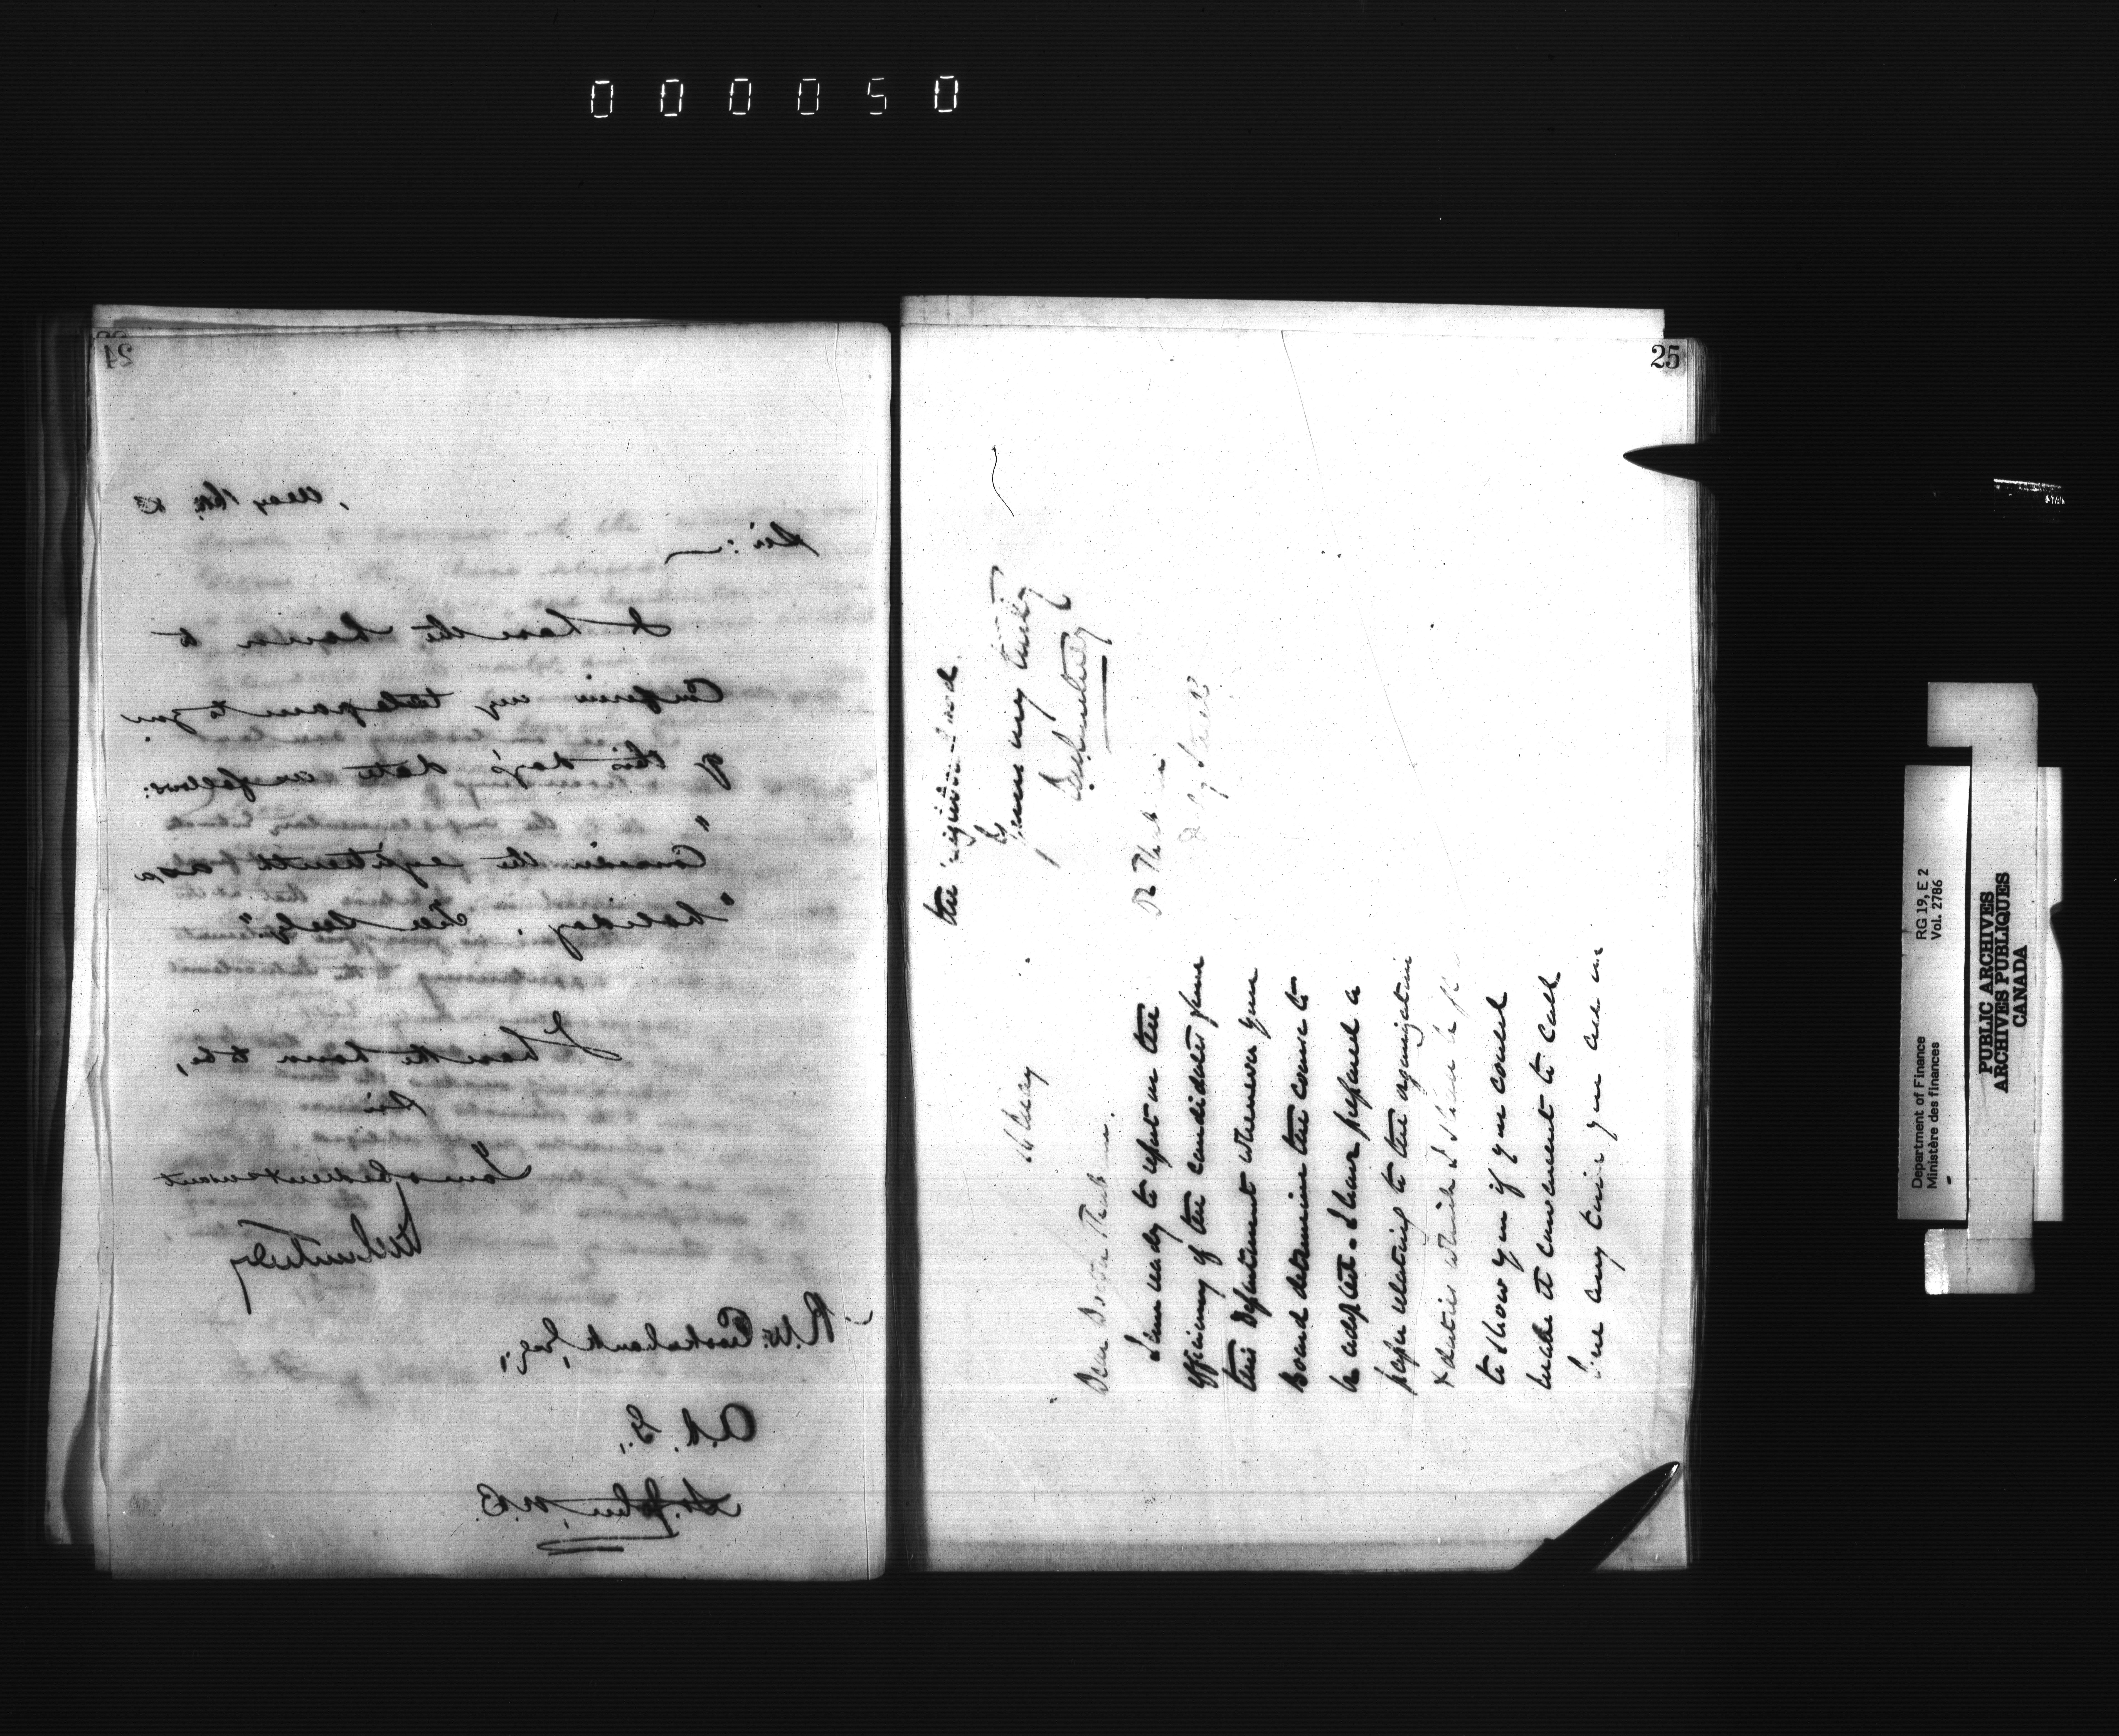 000050
24
May 16th, 83
Sir:
I have the honor to
Confirm my telegram to you
of this day's date as follows:
"Consider the eighteenth (18th) a
"holiday.
I have the honor to be,
Sir
Your obedient servant
JMCourtney
R. W. Crookshank, Esq.,
A. R. G.,
St. John, N.B.
25
16 May
Dear Doctor
I am ready to report on the
efficiency of the candidates from
this Department whenever your
Board determine the course to
be adopted. I have prepared a
paper relating to the organization
& duties which I shall be
to show you if you could
make it convenient to call
any time you are in
the neighbourhood
Yours very truly
JMCourtney
Dr
Department of Finance
Ministère des finances
RG 19, E 2
Vol. 2786
PUBLIC ARCHIVES
ARCHIVES PUBLIQUES
CANADA